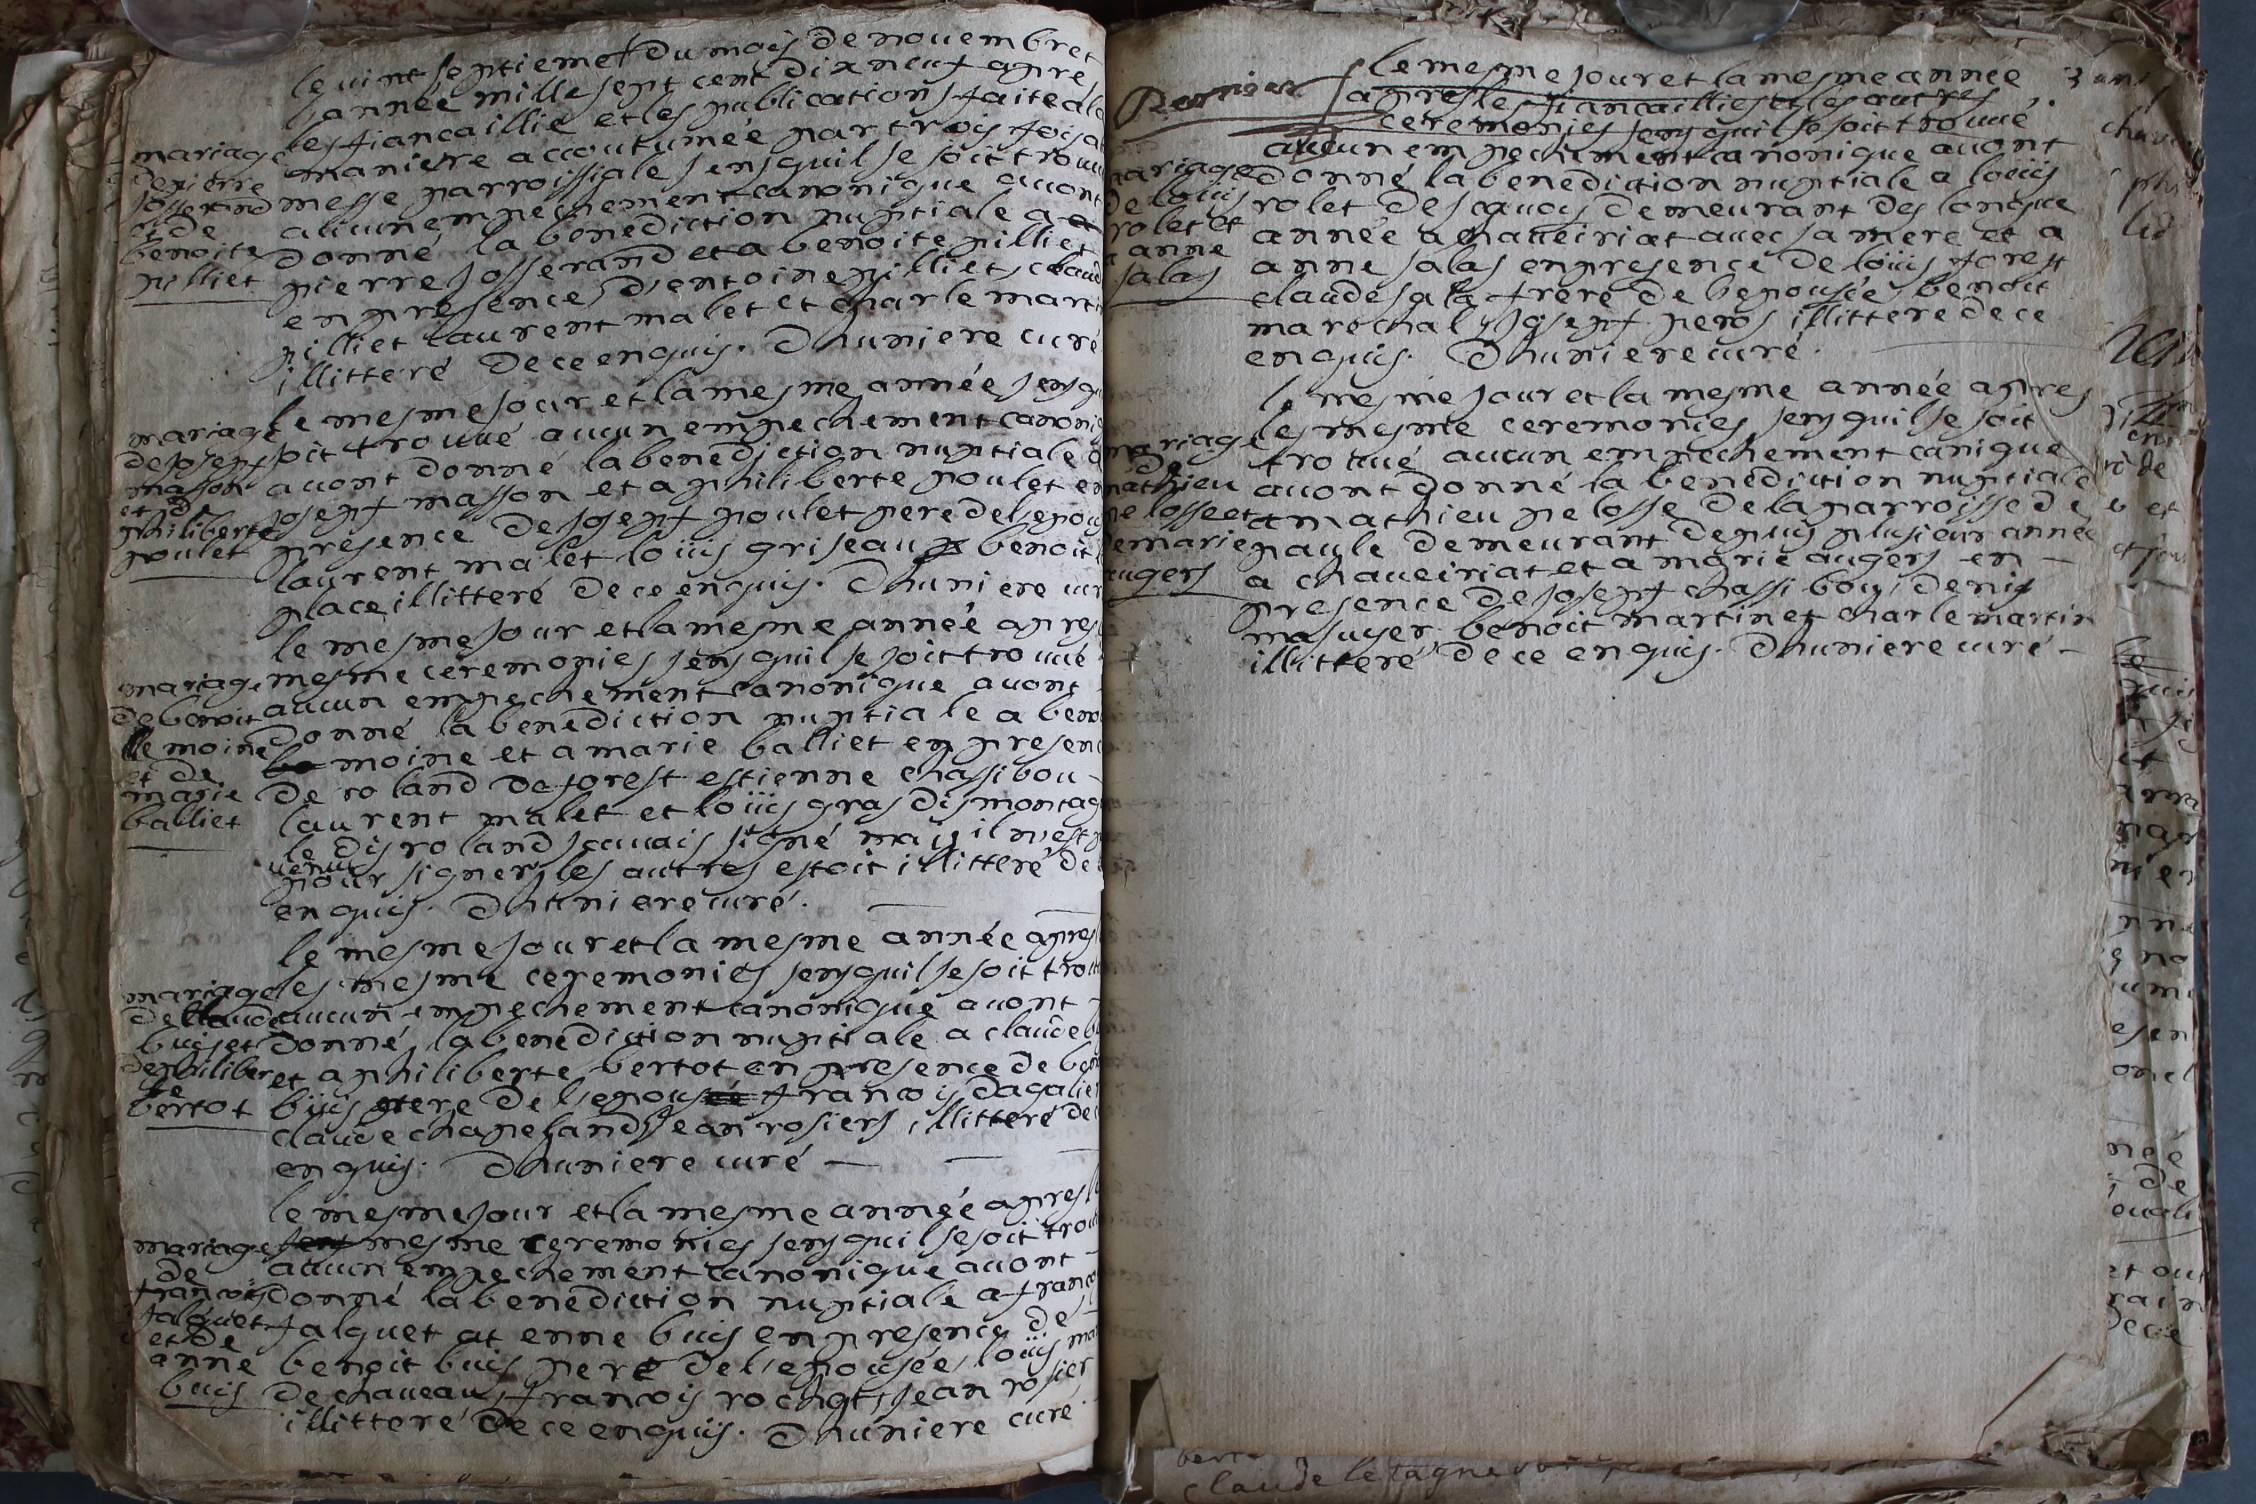 le uint septieme du mois de nouembre
l'année mille sept cent dixneuf apres
les fiancaillie et les publications faite a la
maniere accoutumée par trois fois a
messe parroissiale sens quil se soit trouué
aucun empechement canonique auont
donné la benediction nuptiale a
pierre josserand et a benoite pilliet
en presence d'entoine pilliet, claude
pilliet laurent malet et charle marti
illitteré de ce enquis. Dhuniere curé
mariage
de pierre
josserand
et de
benoite
pilliet
le mesme jour et la mesme année sens qu
soit trouué aucun empechement canoniq
auont donné la benediction nuptiale a
josept masson et a philiberte poulet en
presence de josept poulet pere de l'epou
laurent malet loüis griseau benoit
place illitteré de ce enquis. Dhuniere cur
mariage
de josept
masson
et d
philiberte
poulet
le mesme jour et la mesme année apres
mesme ceremonies sens quil se soit trouué
aucun empechement canonique auont
donné la benediction nuptiale a beno
moine et a marie balliet en presence
de roland deforest estienne chassibou
laurent malet et loüis gras dismontag
le dis roland scauais signé mais il n'est p
uenut
pour signer, les autres estoit illitteré de
enquis. Dhuniere curé.
mariage
de benoit
lemoine
et de
marie
balliet
le mesme jour et la mesme année apres
les mesme ceremonies sens quil se soit trou
aucun empechement canonique auont
donné la benediction nuptiale a claude b
et a philiberte bertot en presence de ben
buis frere de l'epou francois dagalier
claude chapeland, jean rosiers illitteré de
enquis. Dhuniere curé
mariage
de claude
buis et
de philiber
te
bertot
le mesme jour et la mesme année apres l
mesme ceremonies sens quil se soit trou
aucun empechement canonique auont
donné la benediction nuptiale a franco
falquet at enne buis en presence de
benoit buis pere de l'epousée, loüis ma
de chaueau, francois rochat, jean rosier
illitteré de ce enquis. Dhuniere curé.
mariage
de
francois
falquet
et de
anne
buis
Dernier
le mesme jour et la mesme année
apres les fiancaillies et les autres
ceremonies sens quil se soit trouué
aucun empechement canonique auont
donné la benediction nuptiale a loüis
rolet des quois demeurant des longue
année a chaueiriat auec sa mere et a
anne salas en presence de loüis forest
claude sala frere de l'epousée, benoit
marechal, josept peros illittere de ce
enquis. Dhuniere curé.
mariage
de loüis
rolet et
anne
salas
le mesme jour et la mesme année apres
les mesme ceremonies sens quil se soit
trouué aucun empechement canique
auont donné la benediction nuptiale
a mathieu pelosse de la parroisse de
paule demeurant depuis plusieur année
a chaueiriat et a marie augers en
presence de josept chassibou, denis
masuyer, benoit martin et charle martin
illitteré de ce enquis. Dhuniere curé
mariage
de
mathieu
pelosse et
de marie
augers
claude